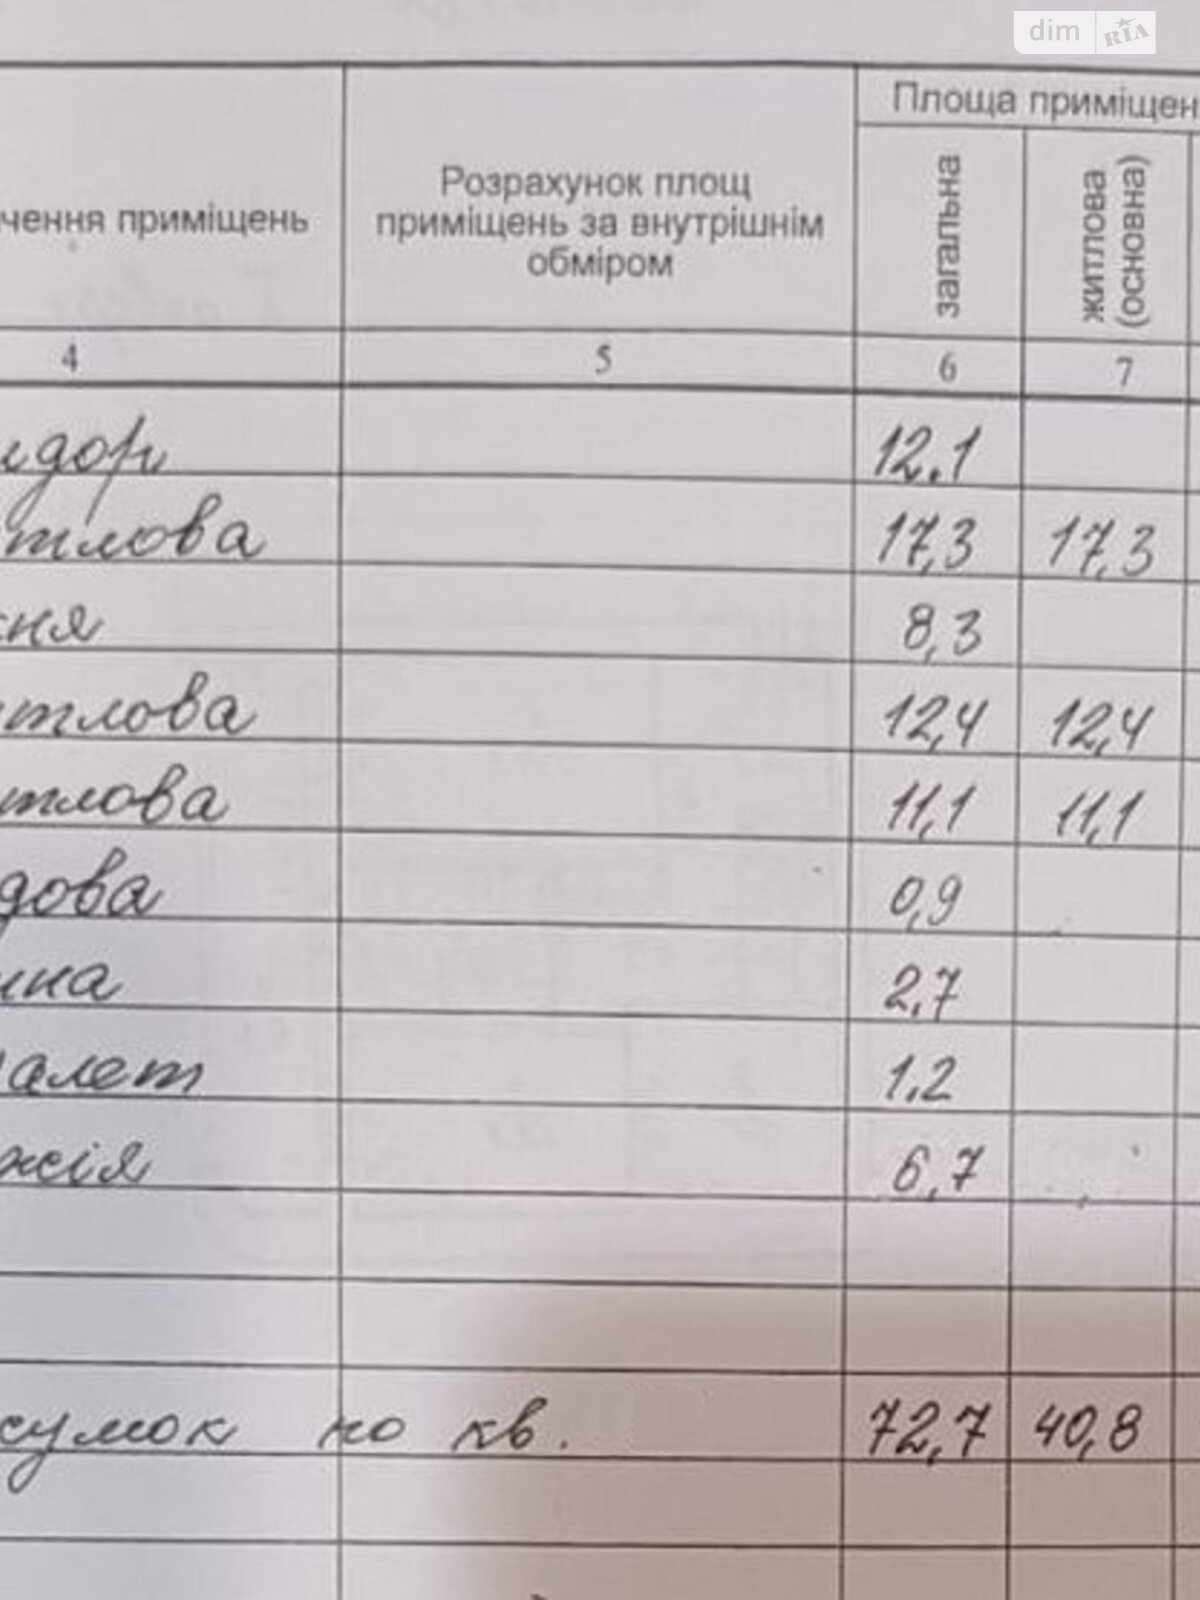 dim RIA
Площа приміщен
чення приміщень
Розрахунок площ
приміщень за внутрішнім
обміром
загальна
житлова
(основна)
4 5 6 7
идор 12.1
итлова 17,3 17,3
хня 8,3
итлова 12,4 12,4
итлова 11,1 11,1
дова 0,9
нна 2,7
алет 1,2
жія 6,7
сумок по кв. 72,7 40,8